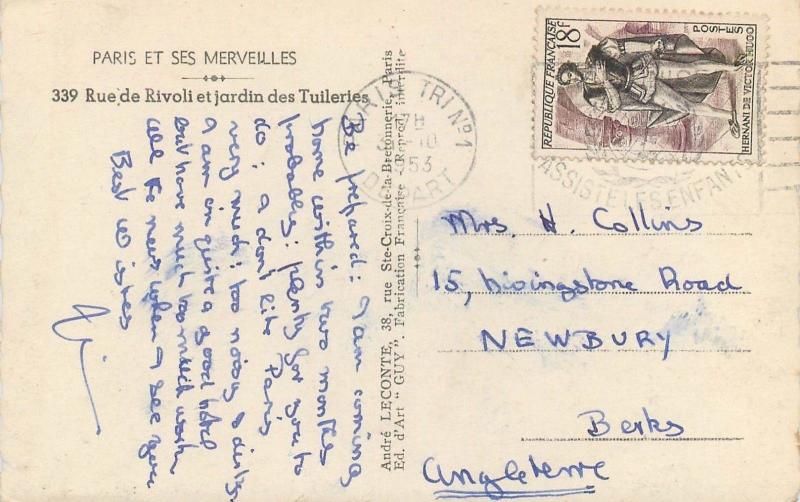 PARIS ET SES MERVEILLES
339 Rue de Rivoli et jardin des Tuileries
Be prepared: I am coming
home within two months
probably: plenty for you to
do: I don't like Paris
very much: too noisy & dirty
I am in quite a good hotel
but have much too much work
all the news when I see you
Best wishes
André LECONTE, 38, rue Ste-Croix-de-la-Bretonnerie, Paris
Ed. d'Art "GUY". Fabrication Française (Reprod. interdite
TRI Nº1
10
1953
DEPART
RÉPUBLIQUE FRANÇAISE
18F
POSTES
HERNANI DE VICTOR HUGO
ASSISTE LES ENFANT
Mrs. H. Collins
15, Livingstone Road
NEWBURY
Berks
Angleterre